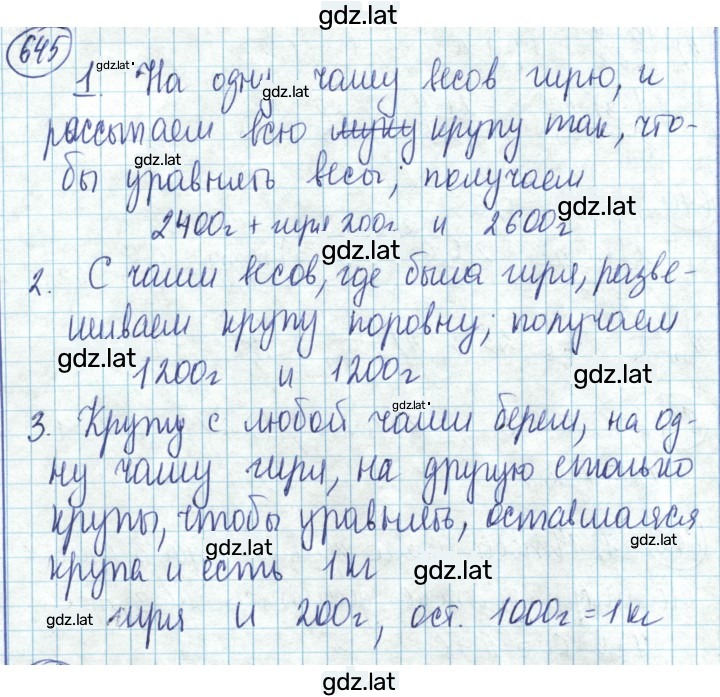 gdz.lat
645
1. На одну чашу весов гирю, и
рассыпаем всю муку крупу так, что-
бы уравнять весы; получаем
2400г + гиря 200г и 2600г
2. С чаши весов, где была гиря, разве-
шиваем крупу поровну; получаем
1200г и 1200г
3. Крупу с любой чаши берем, на од-
ну чашу гиря, на другую столько
крупы, чтобы уравнять, оставшаяся
крупа и есть 1кг
гиря и 200г, ост. 1000г = 1кг
gdz.lat
gdz.lat
gdz.lat
gdz.lat
gdz.lat
gdz.lat
gdz.lat
gdz.lat
gdz.lat
gdz.lat
gdz.lat
gdz.lat
gdz.lat
gdz.lat